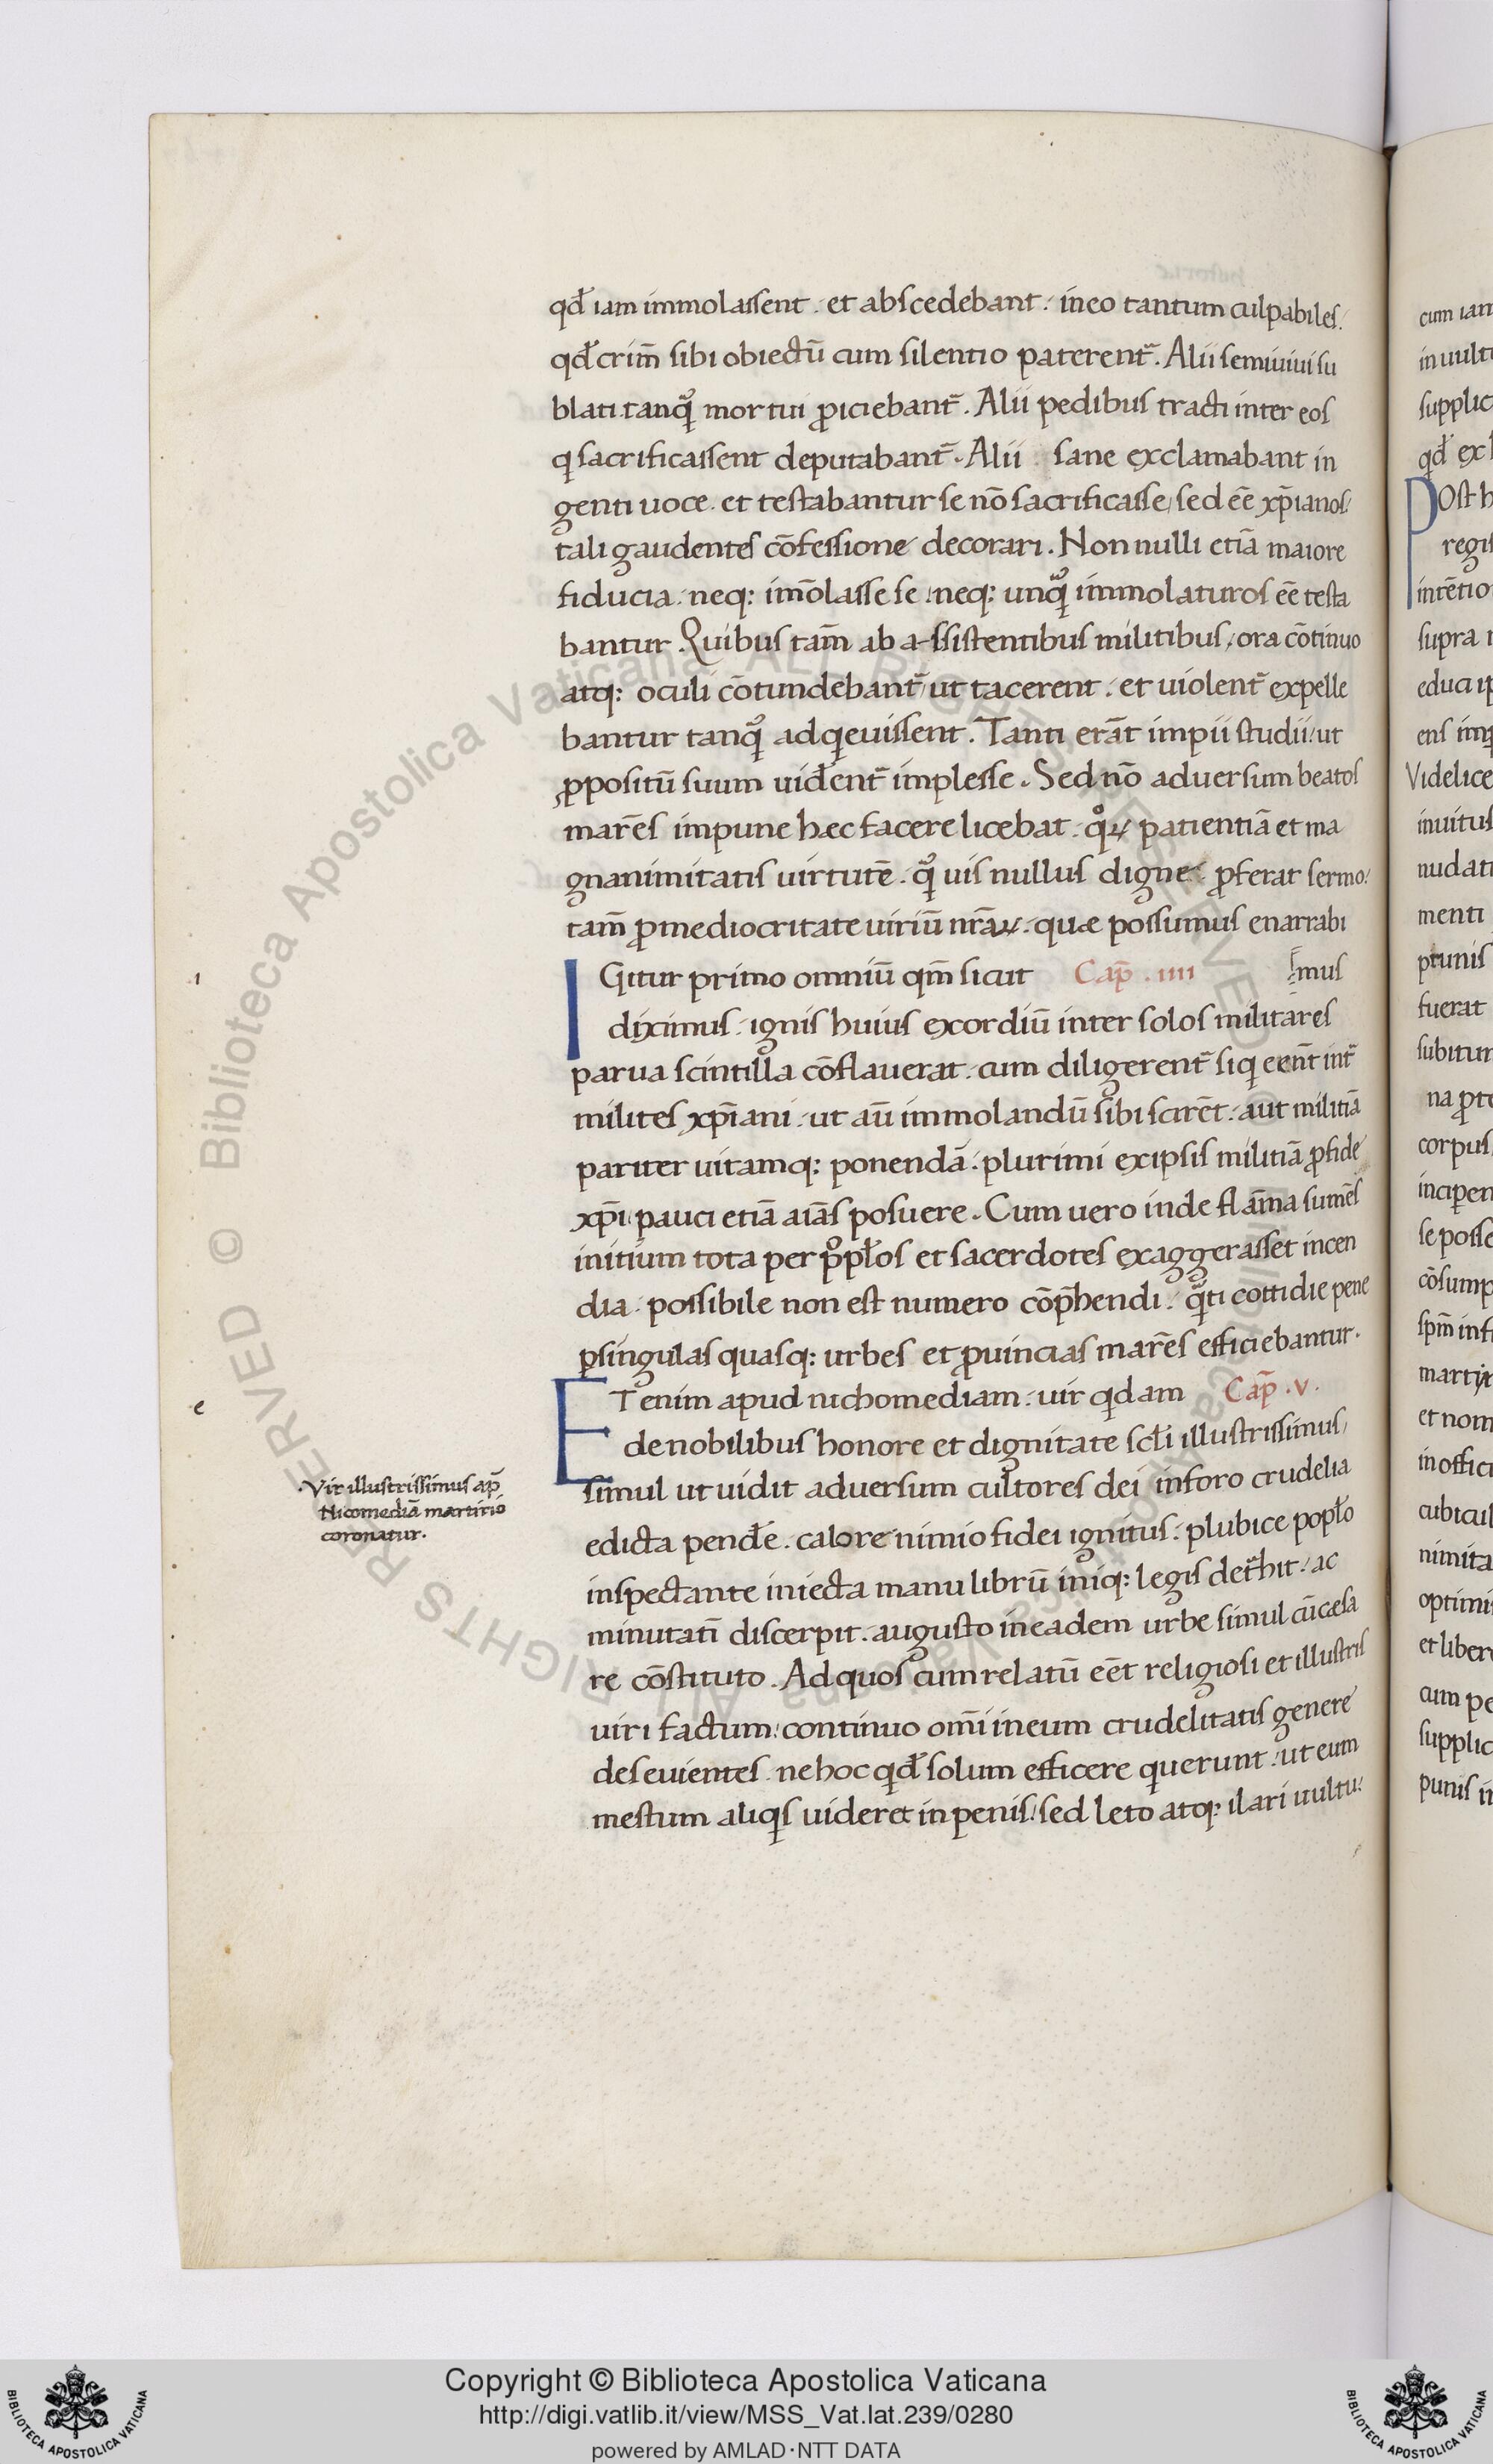 qđ iam immolassent . et abscedebant . in eo tantum culpabiles .
qđ crim̄ sibi obiectū cum silentio paterent᷑ . Alii semiuiui su
blati tanq̃ mortui ꝓiciebant᷑ . Alii pedibus tracti inter eos
q sacrificassent deputabant᷑ . Alii sane exclamabant in
genti uoce . et testabantur se nō sacrificasse sed eē xp̄ianos
tali gaudentes cōfessione decorari . Non nulli etiā maiore
fiducia . neq: im̄olasse se . neq: unq̃ immolaturos eē testa
bantur . Quibus tam̄ ab a-ssistentibus militibus , ora cōtinuo
atq: oculi cōtundebant᷑ ut tacerent . et uiolent᷑ expelle
bantur tanq̃ adqeuissent . Tanti erāt impii studii ut
ꝓpositū suum uiđent᷑ implesse . Sed nō aduersum beatos
mar̄es impune hæc facere licebat . qͦꝝ patientiā et ma
gnanimitatis uirtutē . q̃uis nullus digne ꝓferat sermo .
tam̄ ꝓ mediocritate uiriū nr̄aꝝ . quæ possumus enarrabi
IGitur primo omniū qm̄ sicut Cap̄ . IIII mus
diximus . ignis huius exordiū inter solos militares
parua scintilla cōflauerat . cum diligerent᷑ siq eent̄ int᷑
milites xp̄iani . ut aū immolandū sibi scirēt . aut militiā
pariter uitamq: ponendā . plurimi ex ipsis militiā ꝓ fide
xp̄i . pauci etiā aiās posuere . Cum uero inde flām̄a sumēs
initium tota per pͦpłos et sacerdotes exaggerasset incen
dia . possibile non est numero cōp̄hendi . qᷓti cottidie pene
ꝑ singulas quasq: urbes et ꝓuincias mar̄es efficiebantur .
ETenim apud nichomediam . uir qdam Cap̄ . V .
de nobilibus honore et dignitate scłi illustrissimus ,
simul ut uidit aduersum cultores dei in foro crudelia
edicta penđe . calore nimio fidei ignitus . plubice popło
inspectante iniecta manu librū iniq: legis detᷓhit . ac
minutati̅ discerpit . augusto in eadem urbe simul cū cæsa
re cōstituto . Ad quos cum relatū eēt religiosi et illustris
uiri factum . continuo om̄i in eum crudelitatis genere
deseuientes . ne hoc qđ solum efficere querunt . ut eum
mestum aliqs uideret in penis . sed leto atq: ilari uultu .
ı
e
. Vir illustrissimus ap̄
Nicomediā martirio
coronatur .